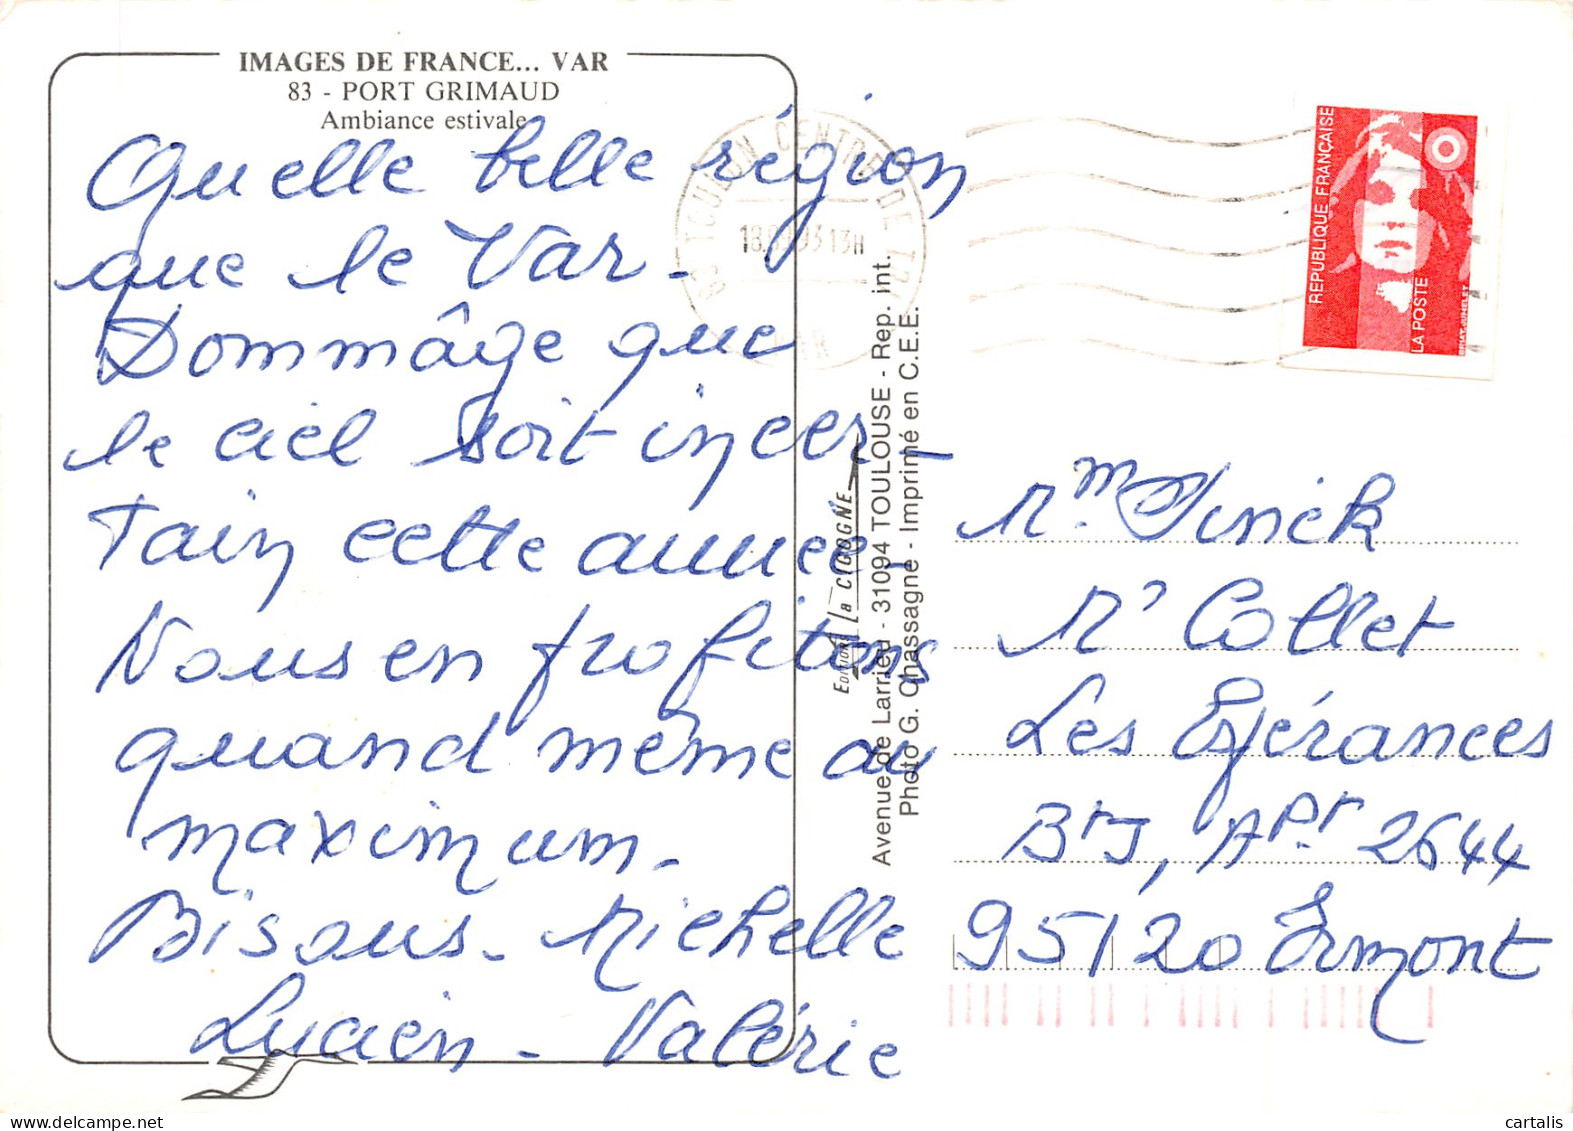 IMAGES DE FRANCE... VAR
83 - PORT GRIMAUD
Ambiance estivale
Quelle belle région
que le Var -
Dommâge que
le ciel soit incer-
tain cette année -
Nous en profitons
quand même au
maximum -
Bisous - Michelle
Lucien - Valérie
TOULON CENTRE DE
13H
VAR
EDITION La CIGOGNE
Avenue de Larrieu - 31094 TOULOUSE - Rep. int.
Photo G. Chassagne - Imprimé en C.E.E.
REPUBLIQUE FRANÇAISE
LA POSTE
BRIAT-JUMELET
Mr Collet
Les Espérances
Bt J, Apt 2644
95120 Ermont
cartalis